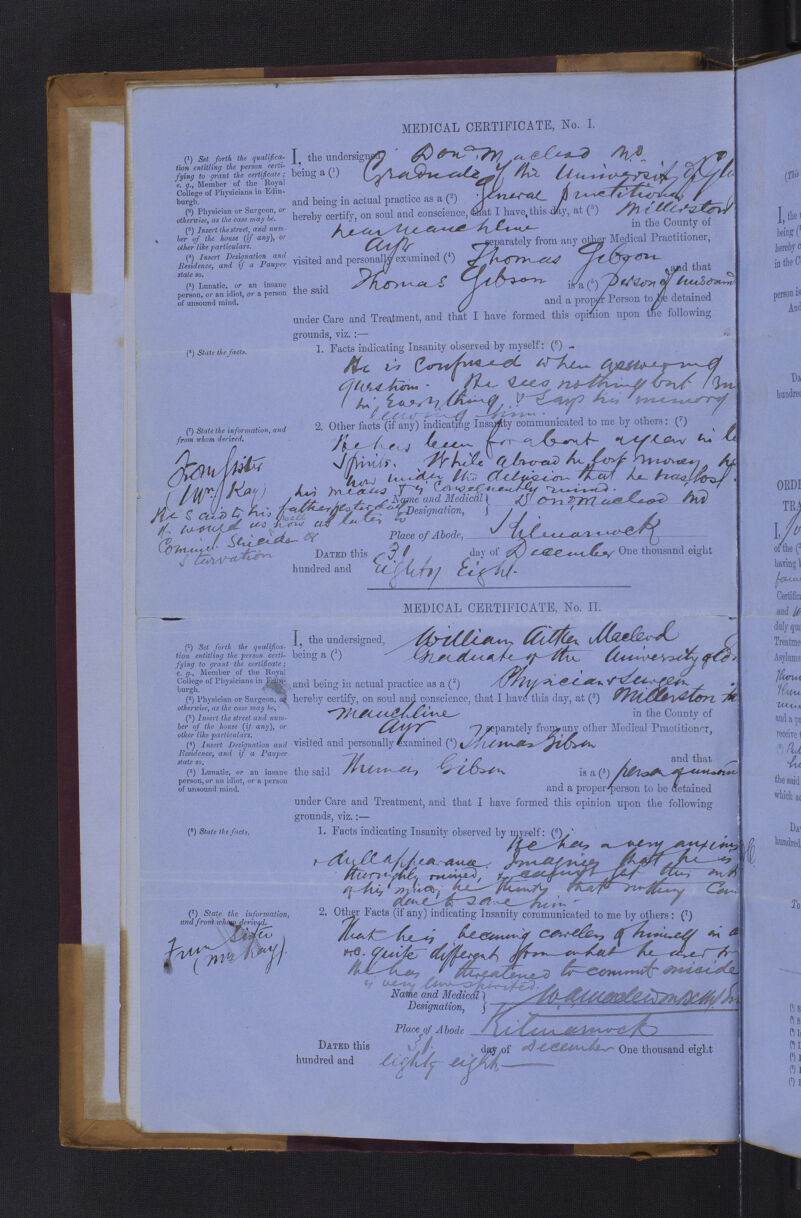 MEDICAL CERTIFICATE, No. I.
(¹) Set forth the qualifica-
tion entitling the person certi-
fying to grant the certificate;
e. g., Member of the Royal
College of Physicians in Edin-
burgh.
(²) Physician or Surgeon, or
otherwise, as the case may be.
(³) Insert the street, and num-
ber of the house (if any), or
other like particulars.
(⁴) Insert Designation and
Residence, and if a Pauper
state so.
(⁵) Lunatic, or an insane
person, or an idiot, or a person
of unsound mind.
I, the undersigned, Don. Macleod MD
being a (¹) Graduate of the University of Gl
and being in actual practice as a (²) General Practitioner
hereby certify, on soul and conscience, that I have this day, at (³) Millerston
near Mauchline in the County of
Ayr separately from any other Medical Practitioner,
visited and personally examined (⁴) Thomas Gibson
and that
the said Thomas Gibson is a (⁵) Person of unsound
and a proper Person to be detained
under Care and Treatment, and that I have formed this opinion upon the following
grounds, viz. :—
(⁶) State the facts.
1. Facts indicating Insanity observed by myself: (⁶)
He is confused when answering
questions. He sees nothing but
in everything, & says his memory
leaving him.
(⁷) State the information, and
from whom derived.
2. Other facts (if any) indicating Insanity communicated to me by others: (⁷)
He has been for about a year in
Spirits. While abroad he lost money
now under the delusion that he has lost
his means & is consequently ruined.
From Sister
(Mrs Kay)
He said to his father yesterday
he would as well now as later
Commit Suicide or
Starvation
Name and Medical Designation, Don. Macleod MD
Place of Abode, Kilmarnock
DATED this 31 day of December One thousand eight
hundred and Eighty Eight.
MEDICAL CERTIFICATE, No. II.
(¹) Set forth the qualifica-
tion entitling the person certi-
fying to grant the certificate;
e. g., Member of the Royal
College of Physicians in Edin-
burgh.
(²) Physician or Surgeon, or
otherwise, as the case may be.
(³) Insert the street and num-
ber of the house (if any), or
other like particulars.
(⁴) Insert Designation and
Residence, and if a Pauper
state so.
(⁵) Lunatic, or an insane
person, or an idiot, or a person
of unsound mind.
I, the undersigned, William Aitken Macleod
being a (¹) Graduate of the University of Ed
and being in actual practice as a (²) Physician & Surgeon
hereby certify, on soul and conscience, that I have this day, at (³) Millerston
Mauchline in the County of
Ayr separately from any other Medical Practitioner,
visited and personally examined (⁴) Thomas Gibson
and that
the said Thomas Gibson is a (⁵) person of unsound
and a proper person to be detained
under Care and Treatment, and that I have formed this opinion upon the following
grounds, viz. :—
(⁶) State the facts.
1. Facts indicating Insanity observed by myself: (⁶)
He has a very anxious
& dull appearance. Imagines that he is
thoroughly ruined, & cannot get this out
of his mind, he thinks that nothing can
done to save him.
(⁷) State the information,
and from whom derived.
2. Other Facts (if any) indicating Insanity communicated to me by others: (⁷)
From Sister
(Mrs Kay).
That he is becoming careless of himself in
&c. quite different from what he used to
He has threatened to commit suicide
is very low spirited.
Name and Medical Designation,
Place of Abode Kilmarnock
DATED this 31 day of December One thousand eight
hundred and eighty eight